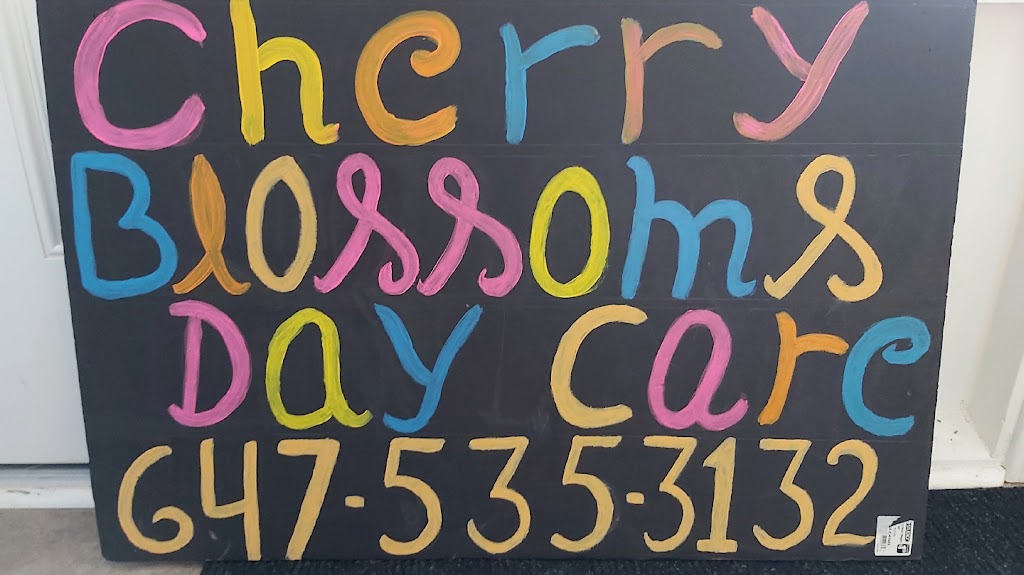 Cherry
Blossoms
Day Care
647-535-3132